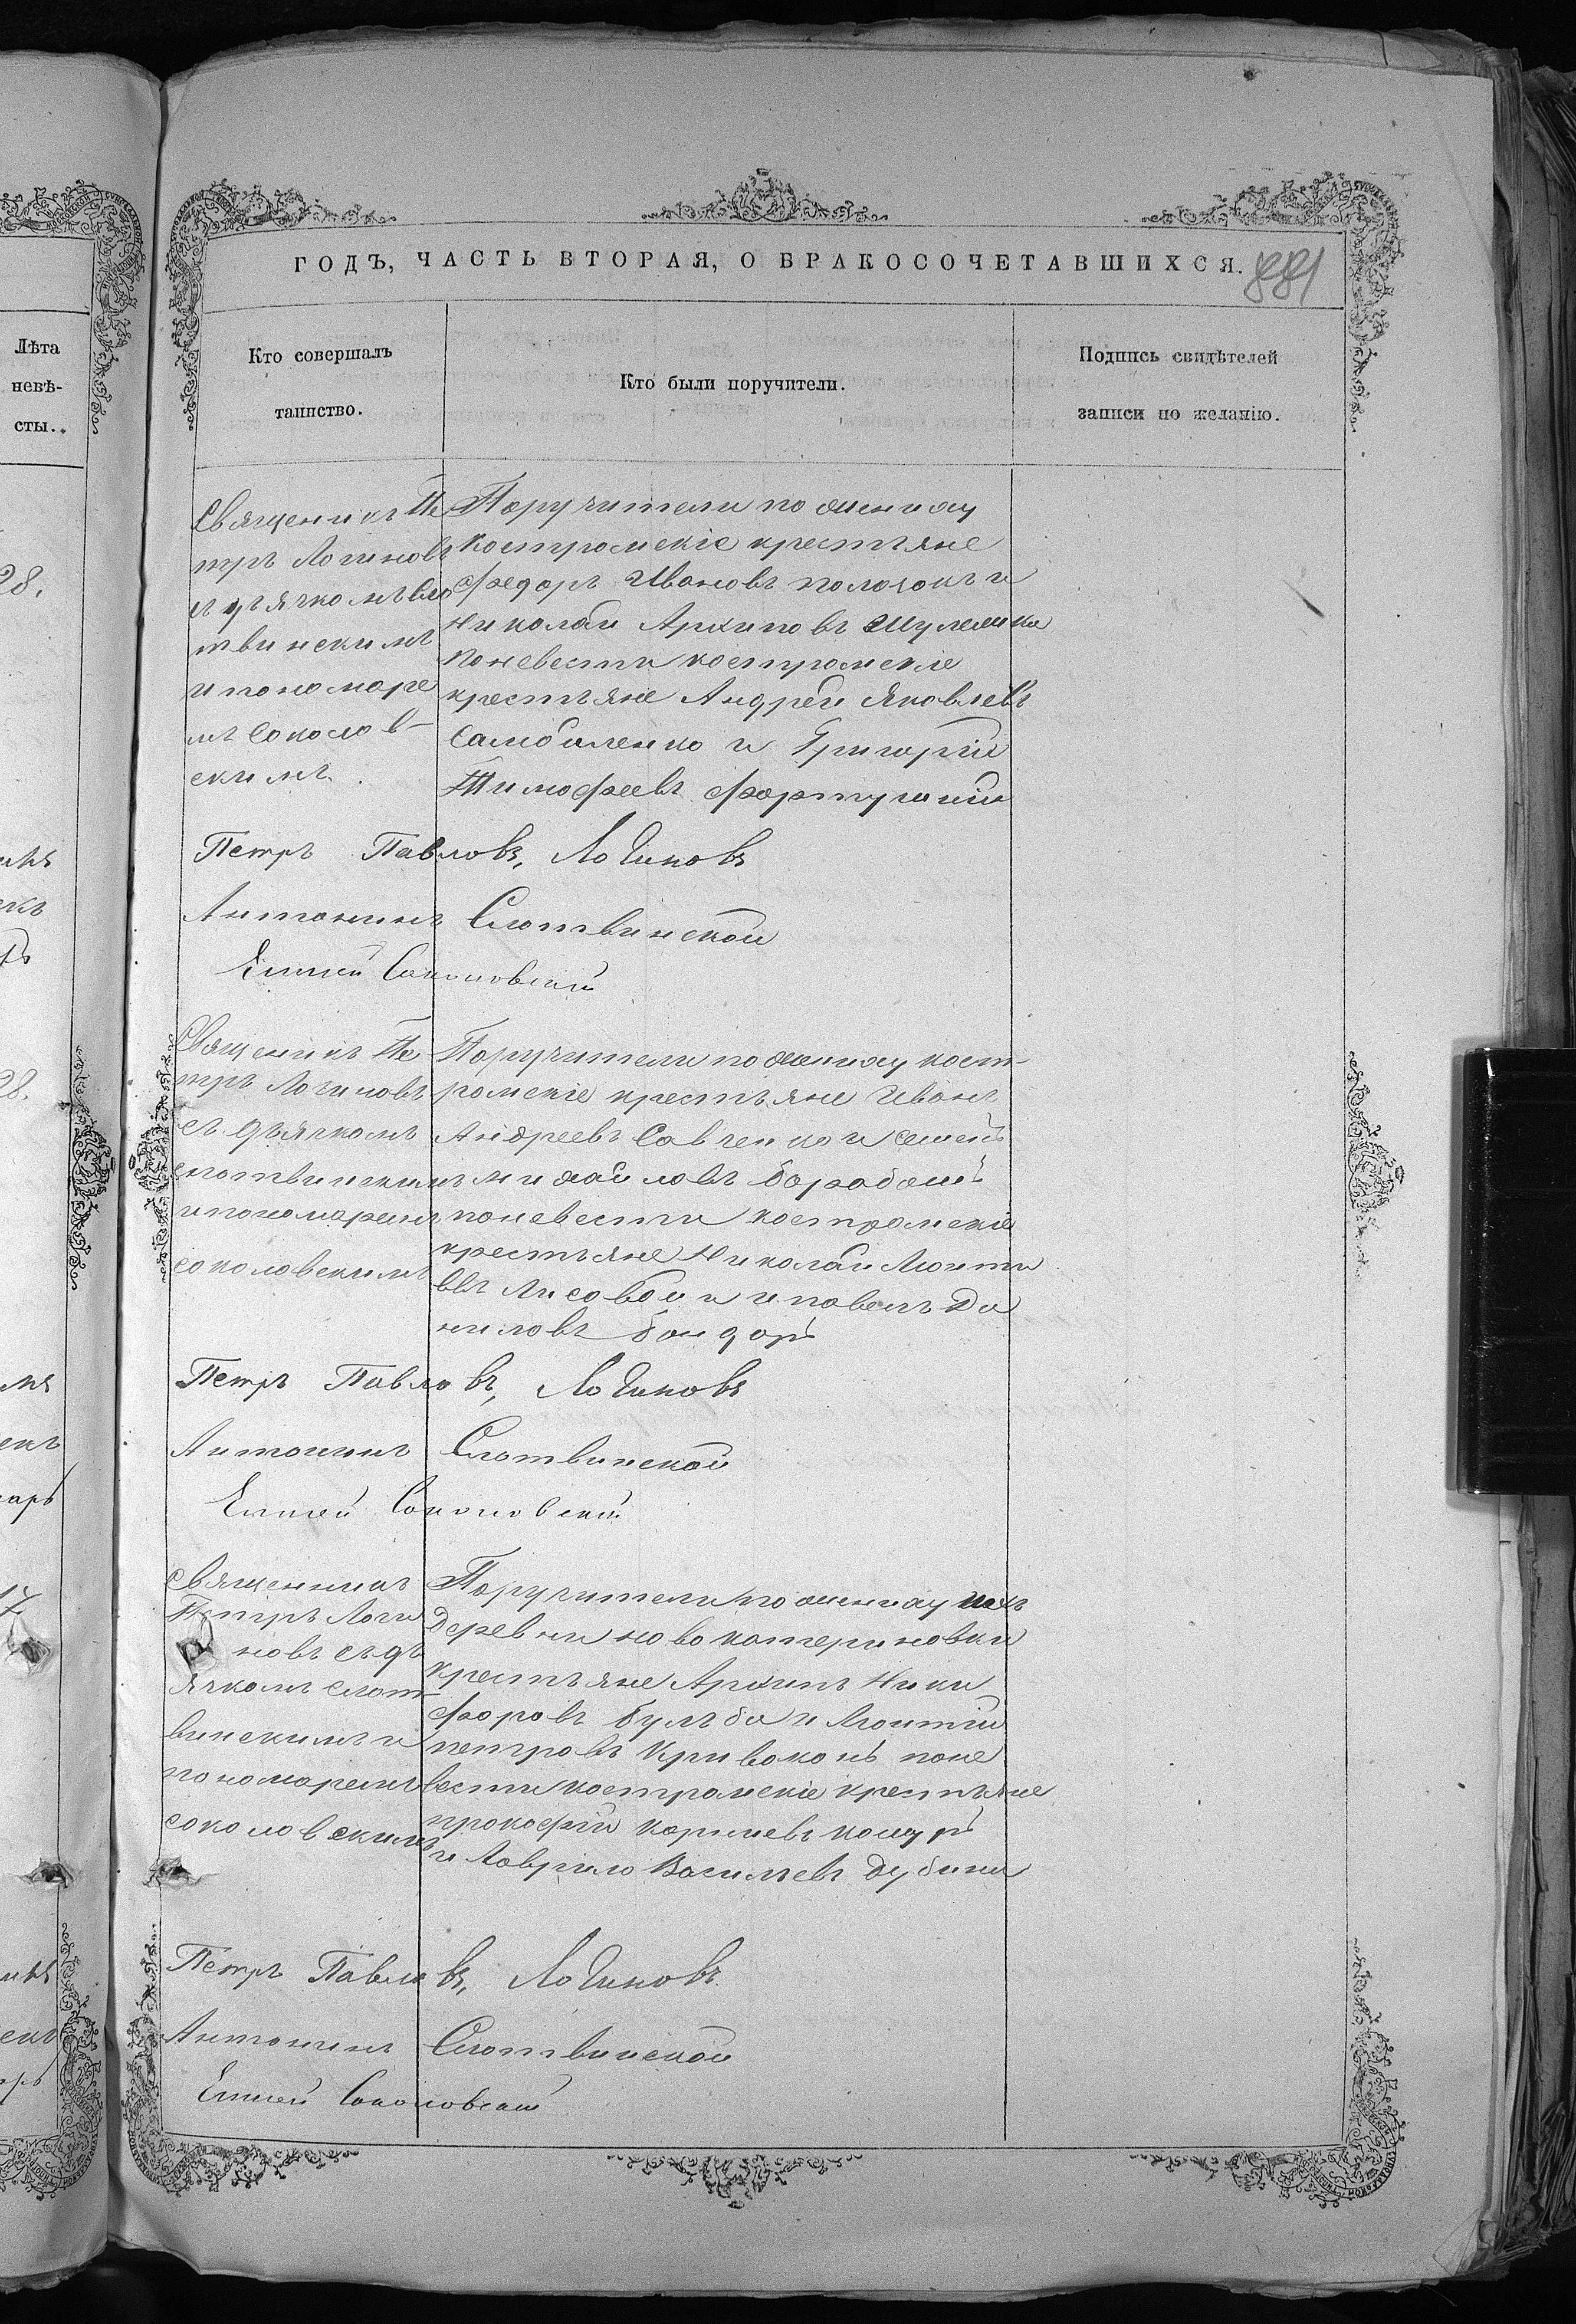 ГОДЪ, ЧАСТЬ ВТОРАЯ, О БРАКОСОЧЕТАВШИХСЯ.
881
Лѣта
невѣ-
сты.
Кто совершалъ
таинство.
Кто были поручители.
Подпись свидѣтелей
записи по желанію.
28.
Священикъ Пе
тръ Логиновъ
съ дьячкомъ Сло
твинскимъ
и пономаре
мъ Соколов-
скимъ.
Поручители по жениху
костромскіе крестьяне
Федоръ Ивановъ полочокъ и
Николай Архиповъ Шулешка
Поневести костромскіе
крестьяне Андрей Яковлевъ
Самойленко и Григорій
Тимофеевъ
Петръ Павловъ, Логиновъ
Антонинъ Слотвинской
Елисей Соколовскій
28.
Священикъ Пе
тръ Логиновъ
съ дьячкомъ
слотвинскимъ
и пономаремъ
соколовскимъ
Поручители по жениху кост-
ромскіе крестьяне Иванъ
Андреевъ Савченко и Семенъ
михайловъ барабашъ
поневести костромскіе
крестьяне Николай Леонти
евъ Лисовой и павелъ Да
ниловъ бондарь
Петръ Павловъ, Логиновъ
Антонинъ Слотвинской
Елисей Соколовскій
17
Священникъ
Петръ Логи
новъ съ дь
ячкомъ слот-
винскимъ и
пономаремъ
соколовскимъ
Поручители по жениху
деревни новокатериновки
крестьяне Архипъ Ники
форовъ бульба и Леонтій
петровъ Кривоконь поне
вести костромскіе крестьяне
прокофій Корнѣевъ
и Лаврило Васильевъ Дубина
Петръ Павловъ, Логиновъ
Антонинъ Слотвинской
Елисей Соколовскій